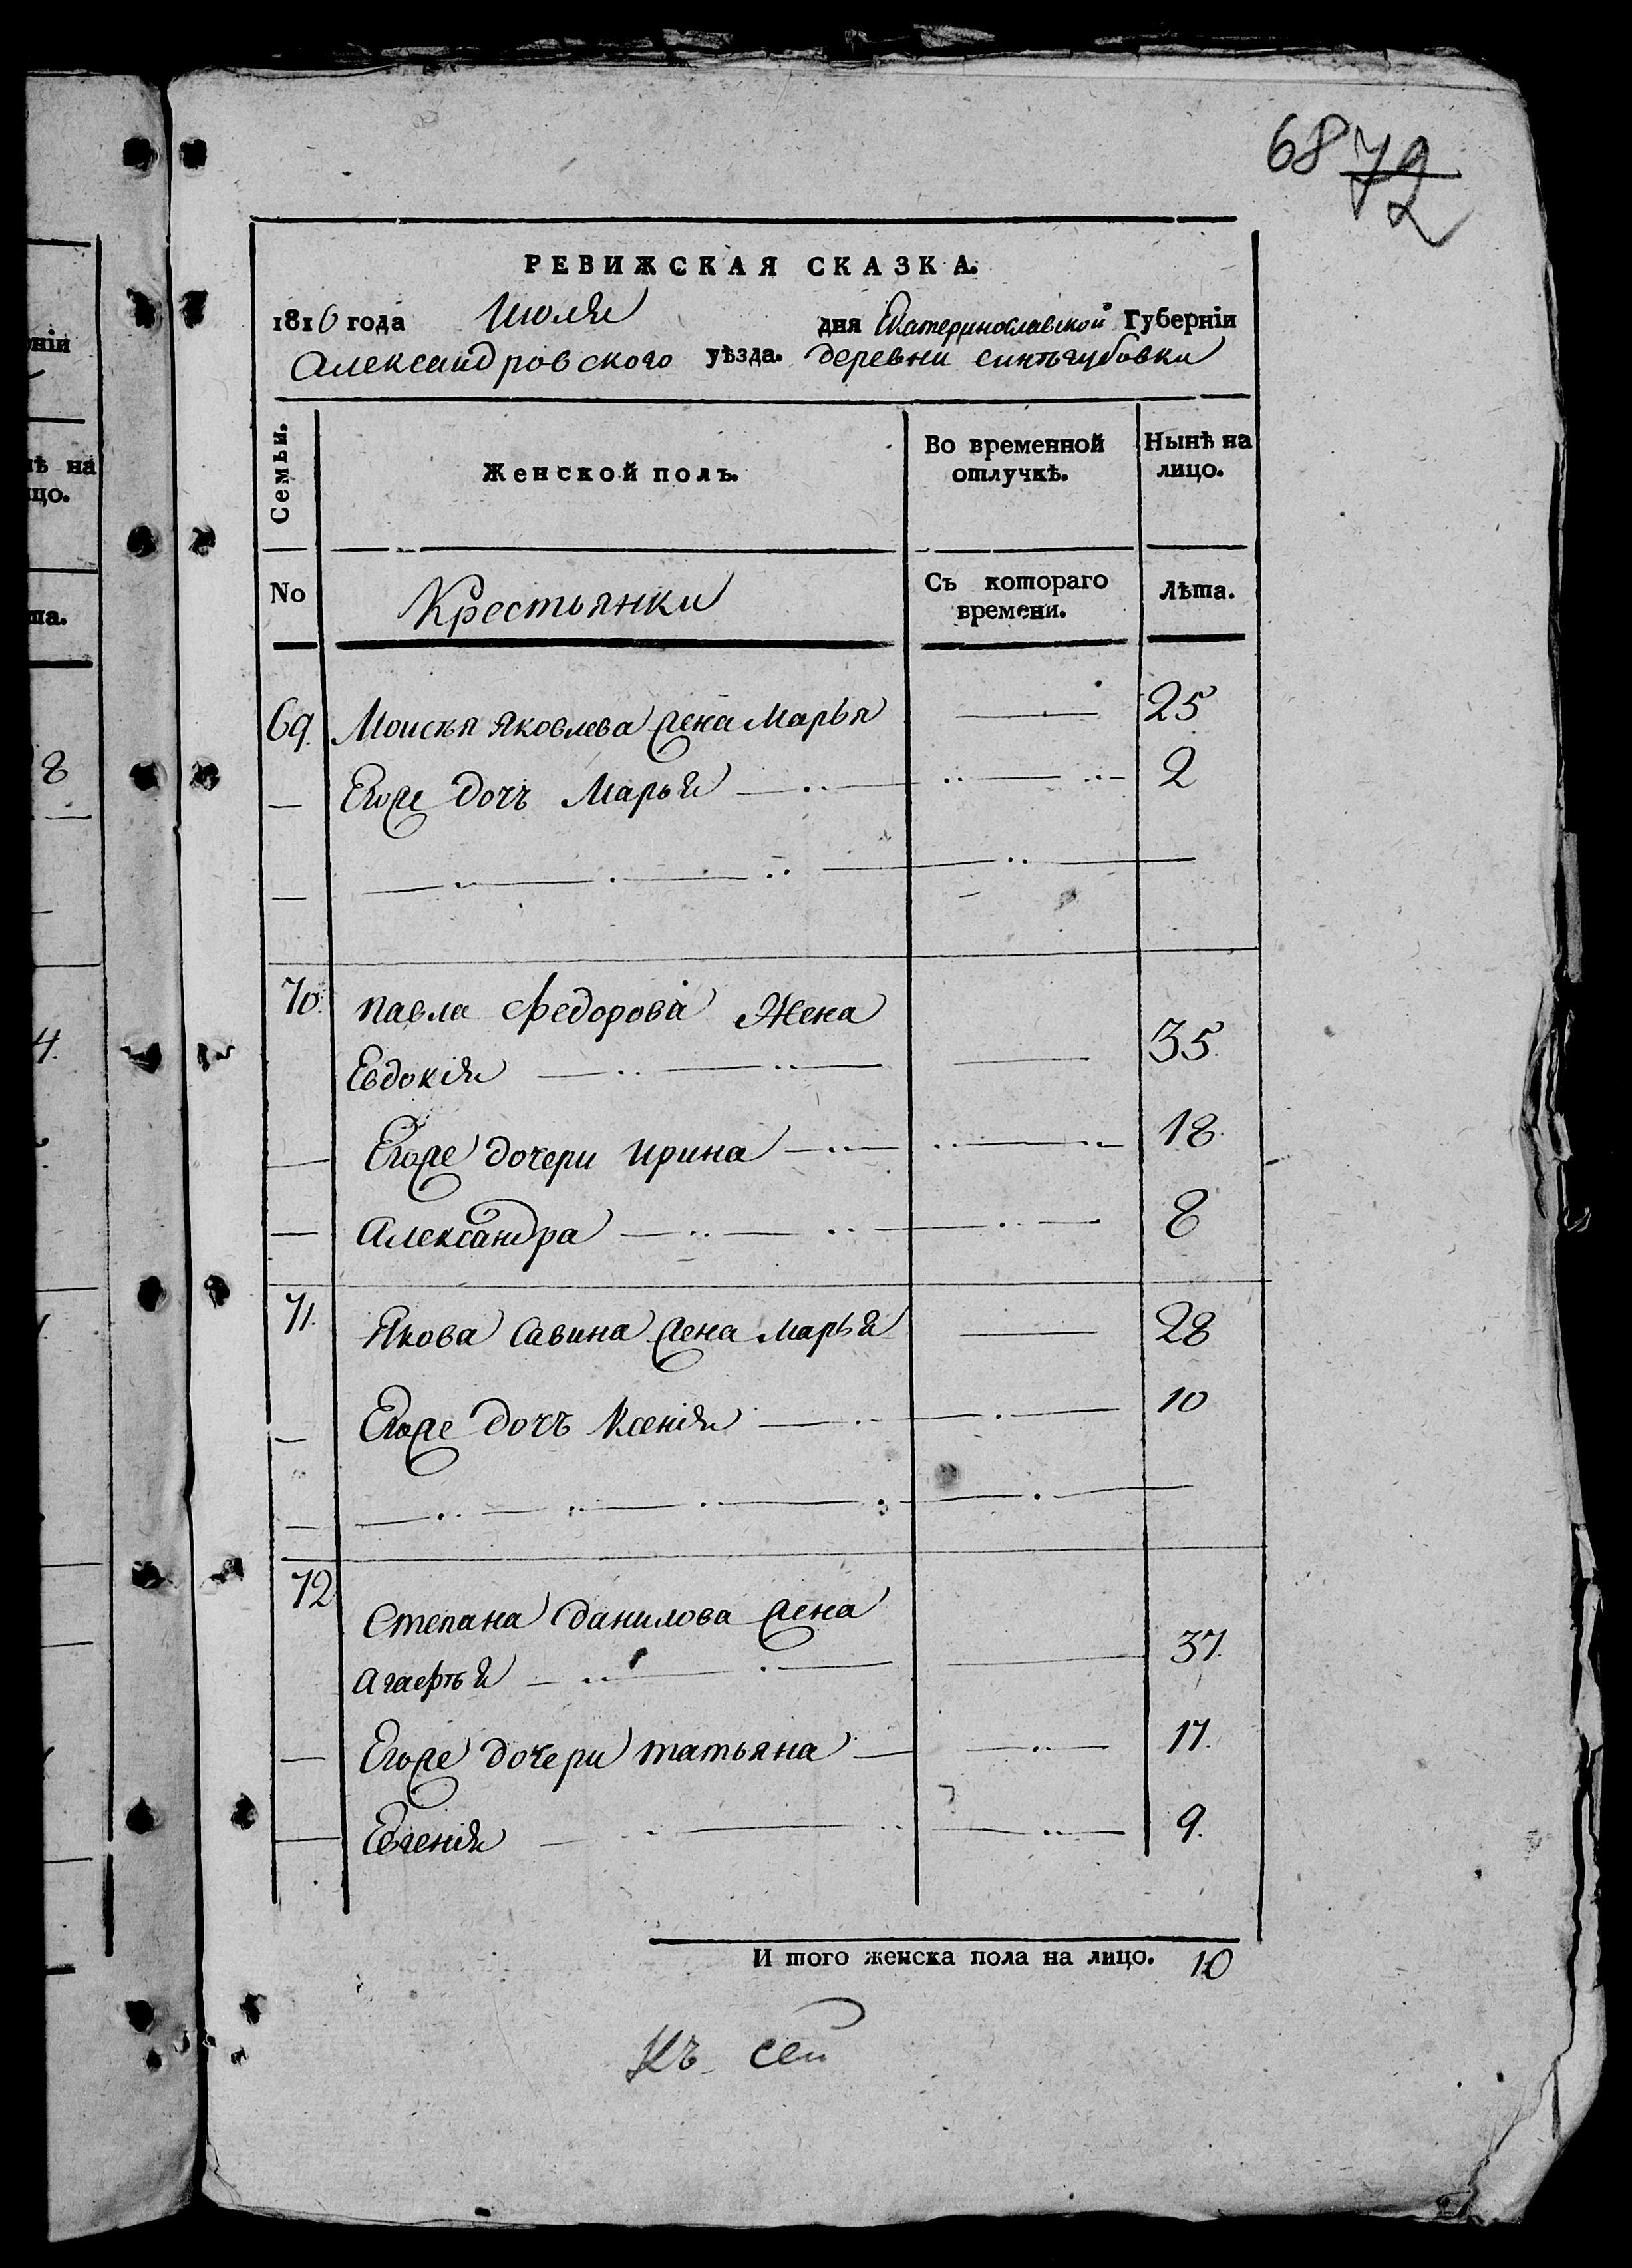 68 72
РЕВИЖСКАЯ СКАЗКА.
1816 года Июля дня Екатеринославской Губернїи
Александровского уѣзда. деревни синѣгубовки
Семьи. Женской полъ. Во временной отлучкѣ. Нынѣ на лицо.
No Крестьянки Съ котораго времени. Лѣта.
69. Моисѣя Яковлева жена Марья 25
Егоже дочь Марья 2
70. Павла Федорова Жена
Евдокїя 35.
Егоже дочери Ирина 18.
Александра 8
71. Якова Савина жена Марья 28
Егоже дочь Ксенїя 10
72 Степана Данилова жена
Агафья 37.
Егоже дочери татьяна 17.
Евгенїя 9.
И того женска пола на лицо. 10
Къ сей
нїи
ѣ на
цо.
та.
8
4.